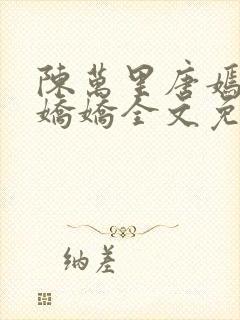 陳萬里唐嫣
嬌嬌全文免
納差